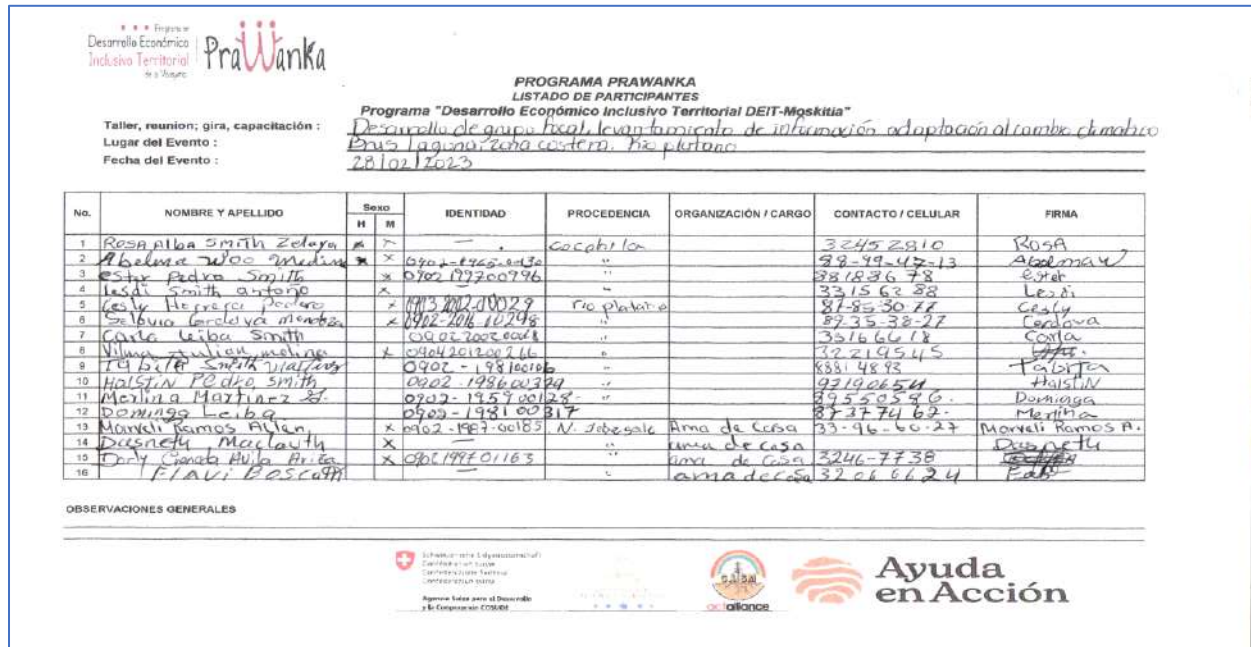 Programa de
Desarrollo Económico
Inclusivo Territorial
PraWanka
PROGRAMA PRAWANKA
LISTADO DE PARTICIPANTES
Programa "Desarrollo Económico Inclusivo Territorial DEIT-Moskitia"
Taller, reunion; gira, capacitación : Desarrollo de grupo focal, levantamiento de información adaptación al cambio climatico
Lugar del Evento : Brus laguna, zona costera. Rio platano
Fecha del Evento : 28/02/2023
No. NOMBRE Y APELLIDO Sexo H M IDENTIDAD PROCEDENCIA ORGANIZACIÓN / CARGO CONTACTO / CELULAR FIRMA
1 Rosa Alba Smith Zelaya x x — cocobila 32452810 ROSA
2 Abelma Woo Medina x x " 88-99-47-13 Abelma W
3 Ester Pedro Smith x 0902 199700996 " 88183678 Ester
4 Lesdi Smith antonio x — " 33156288 Lesdi
5 Cesly Herrera x rio platano 87-85-30-77 Cesly
6 x " 89-35-38-27 Cordova
7 Carla Leiba Smith " 33166618 Carla
8 Vilma Julian molina x 0904201200266 " 32219545
9 Smith 0902 - " 88814893 Tabita
10 Halstin Pedro Smith " 97190654 Halstin
11 Merlina Martinez 0902-195900128- " 89550586. Dominga
12 Dominga Leiba 0902-198100317 87377462. Merlina
13 Marveli Ramos Allen x 0902-1987-00185 Ama de Casa 33-96-60-27 Marveli Ramos A.
14 Dasneth x — " ama de casa Dasneth
15 Avila x 0902199701163 " ama de Casa 3246-7738
16 Flavi — " ama de casa 32066624
OBSERVACIONES GENERALES
Schweizerische Eidgenossenschaft
Confédération suisse
Confederazione Svizzera
Confederaziun svizra
Agencia Suiza para el Desarrollo
y la Cooperación COSUDE
actalliance
Ayuda
en Acción